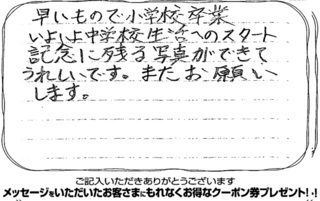 早いもので小学校卒業
いよいよ中学校生活へのスタート
記念に残る写真ができて
うれしいです。またお願い
します。
ご記入いただきありがとうございます
メッセージをいただいたお客さまにもれなくお得なクーポン券プレゼント!!